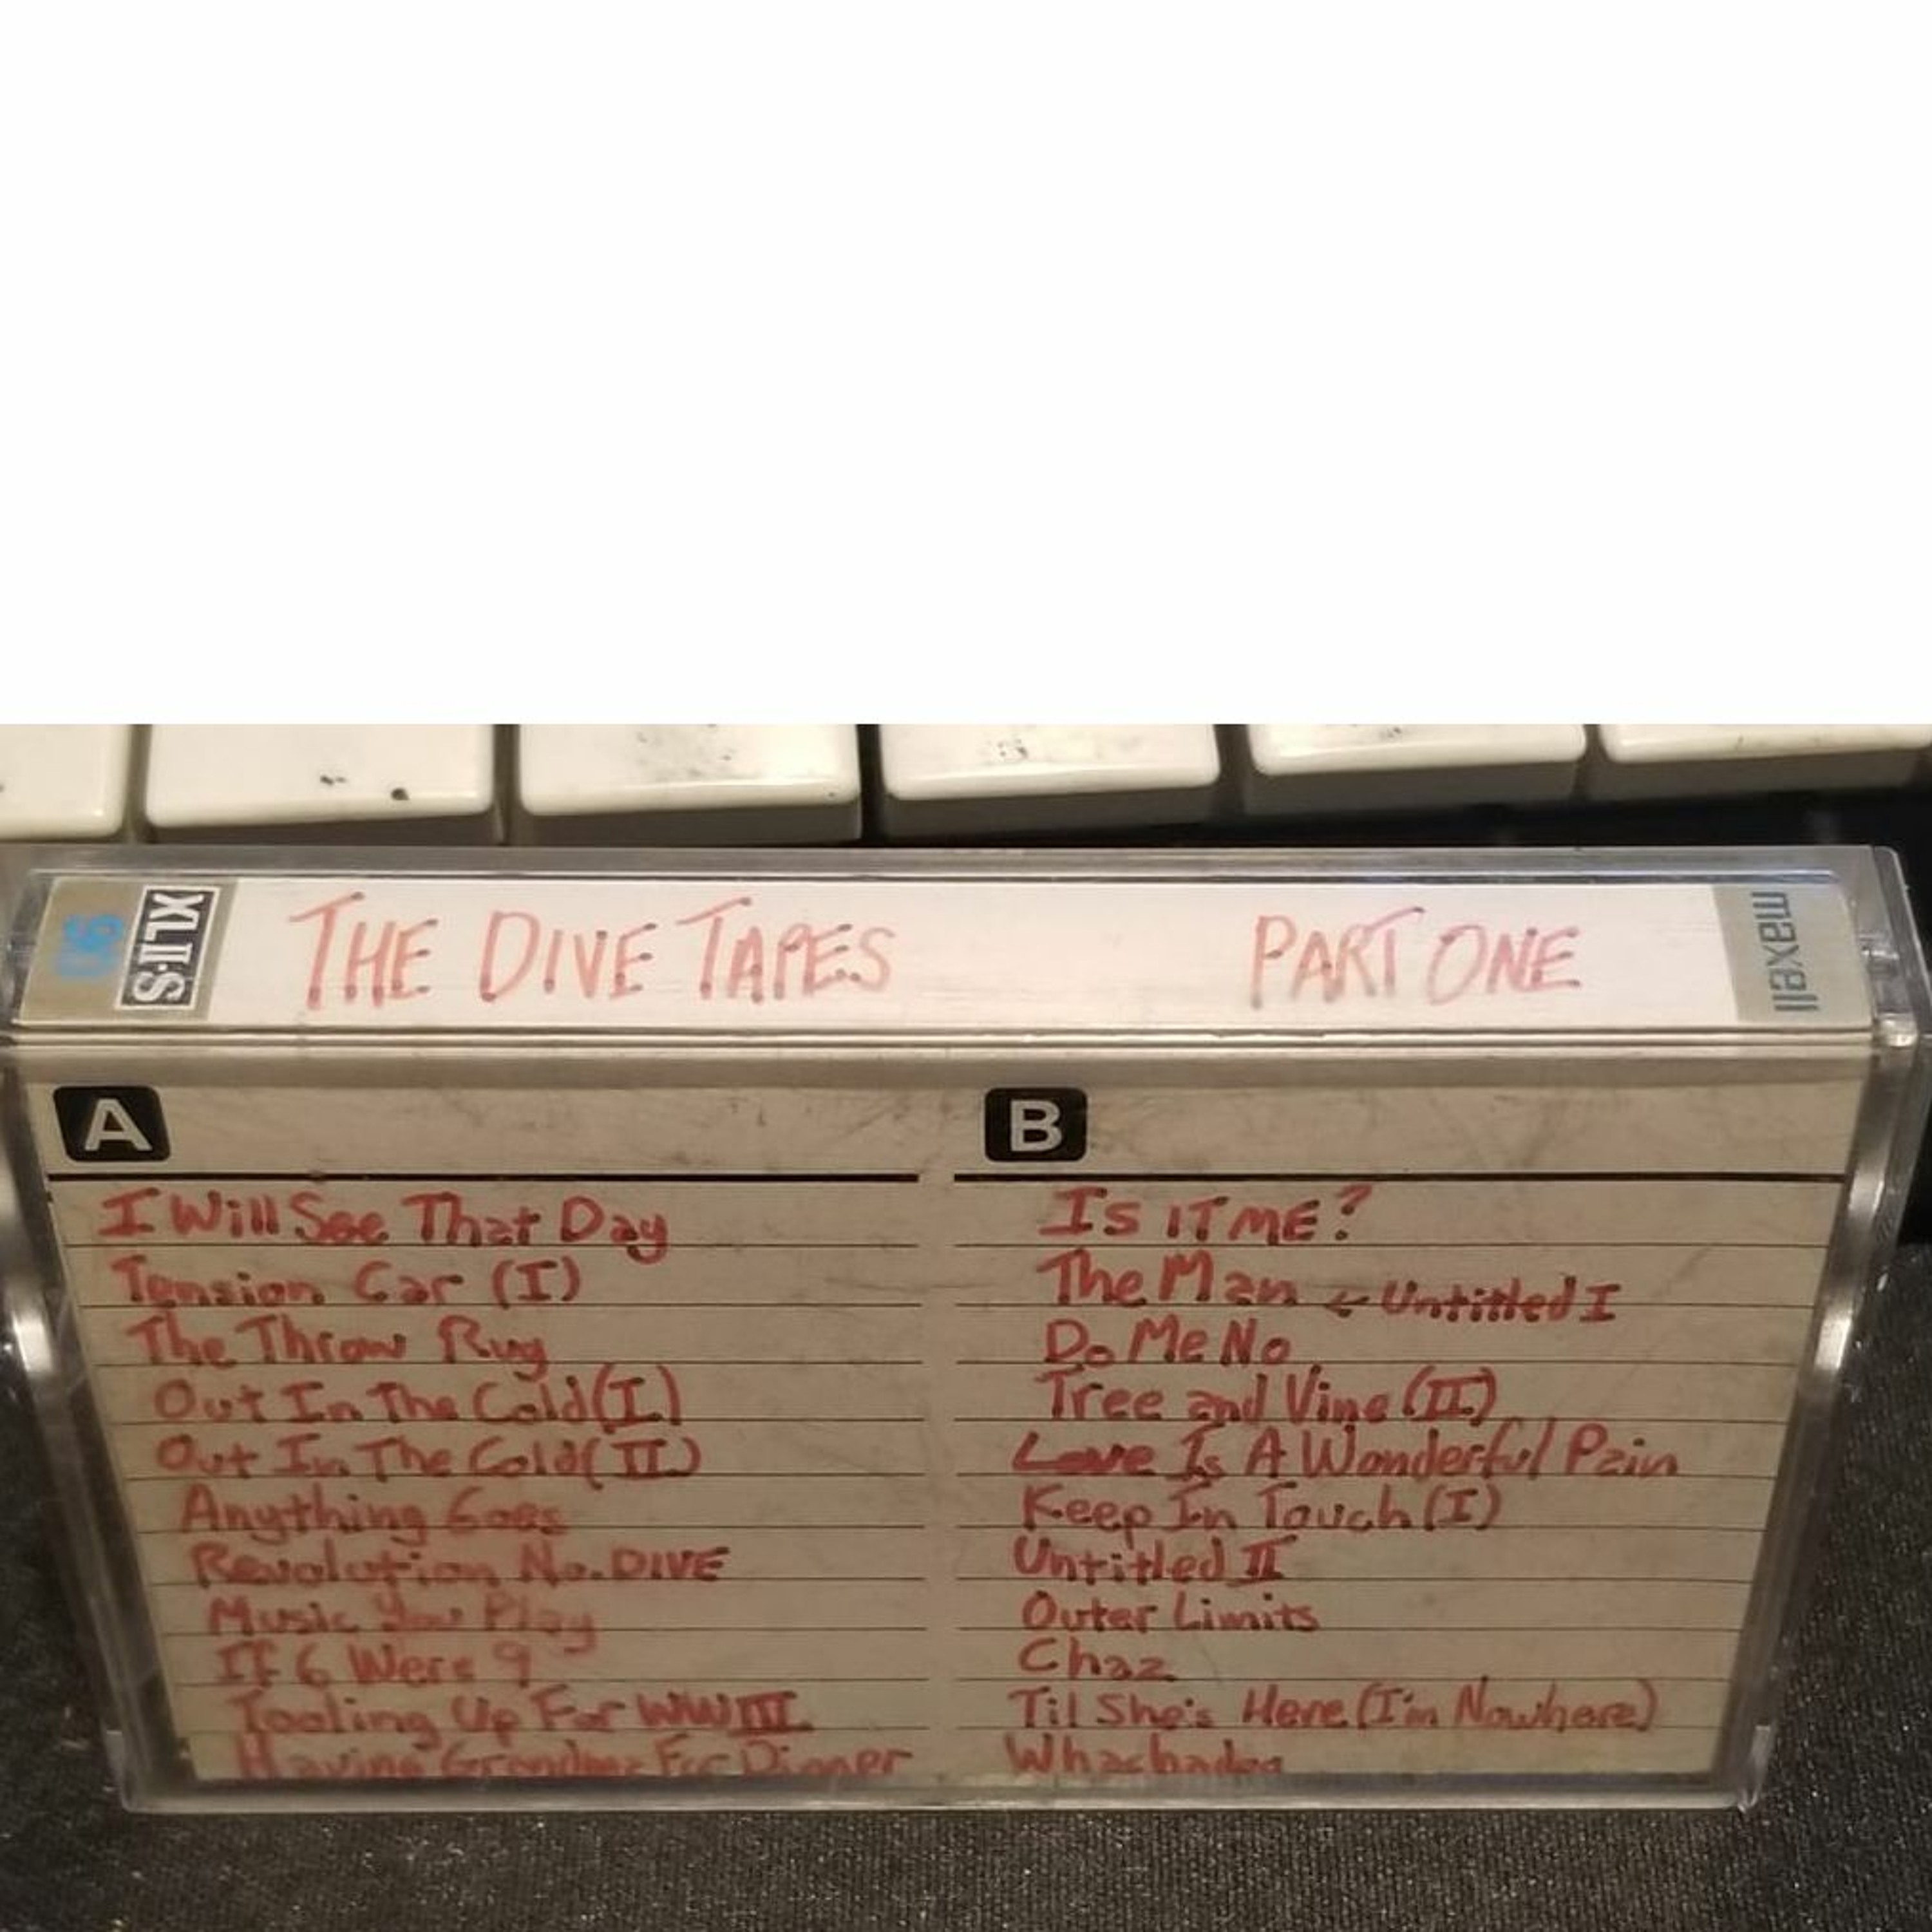 90 XLII-S THE DIVE TAPES PART ONE maxell
A
I Will See That Day
Tension Car (I)
The Throw Rug
Out In The Cold (I)
Out In The Cold (II)
Anything Goes
Revolution No. DIVE
Music You Play
If 6 Were 9
Tooling Up For WWIII
Having Grandma For Dinner
B
Is IT ME?
The Man ← Untitled I
Do Me No
Tree and Vine (II)
Love Is A Wonderful Pain
Keep In Touch (I)
Untitled II
Outer Limits
Chaz
Til She's Here (I'm Nowhere)